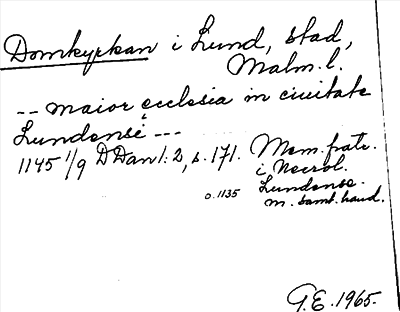 Domkyrkan i Lund, stad,
Malm. l.
-- maior ecclesia in civitate
Lundensi ---
1145 1/9 DDan 1:2, s. 171. Mem. fratr.
i Necrol.
Lundense.
o. 1135 m. saml. hand.
G.E. 1965.